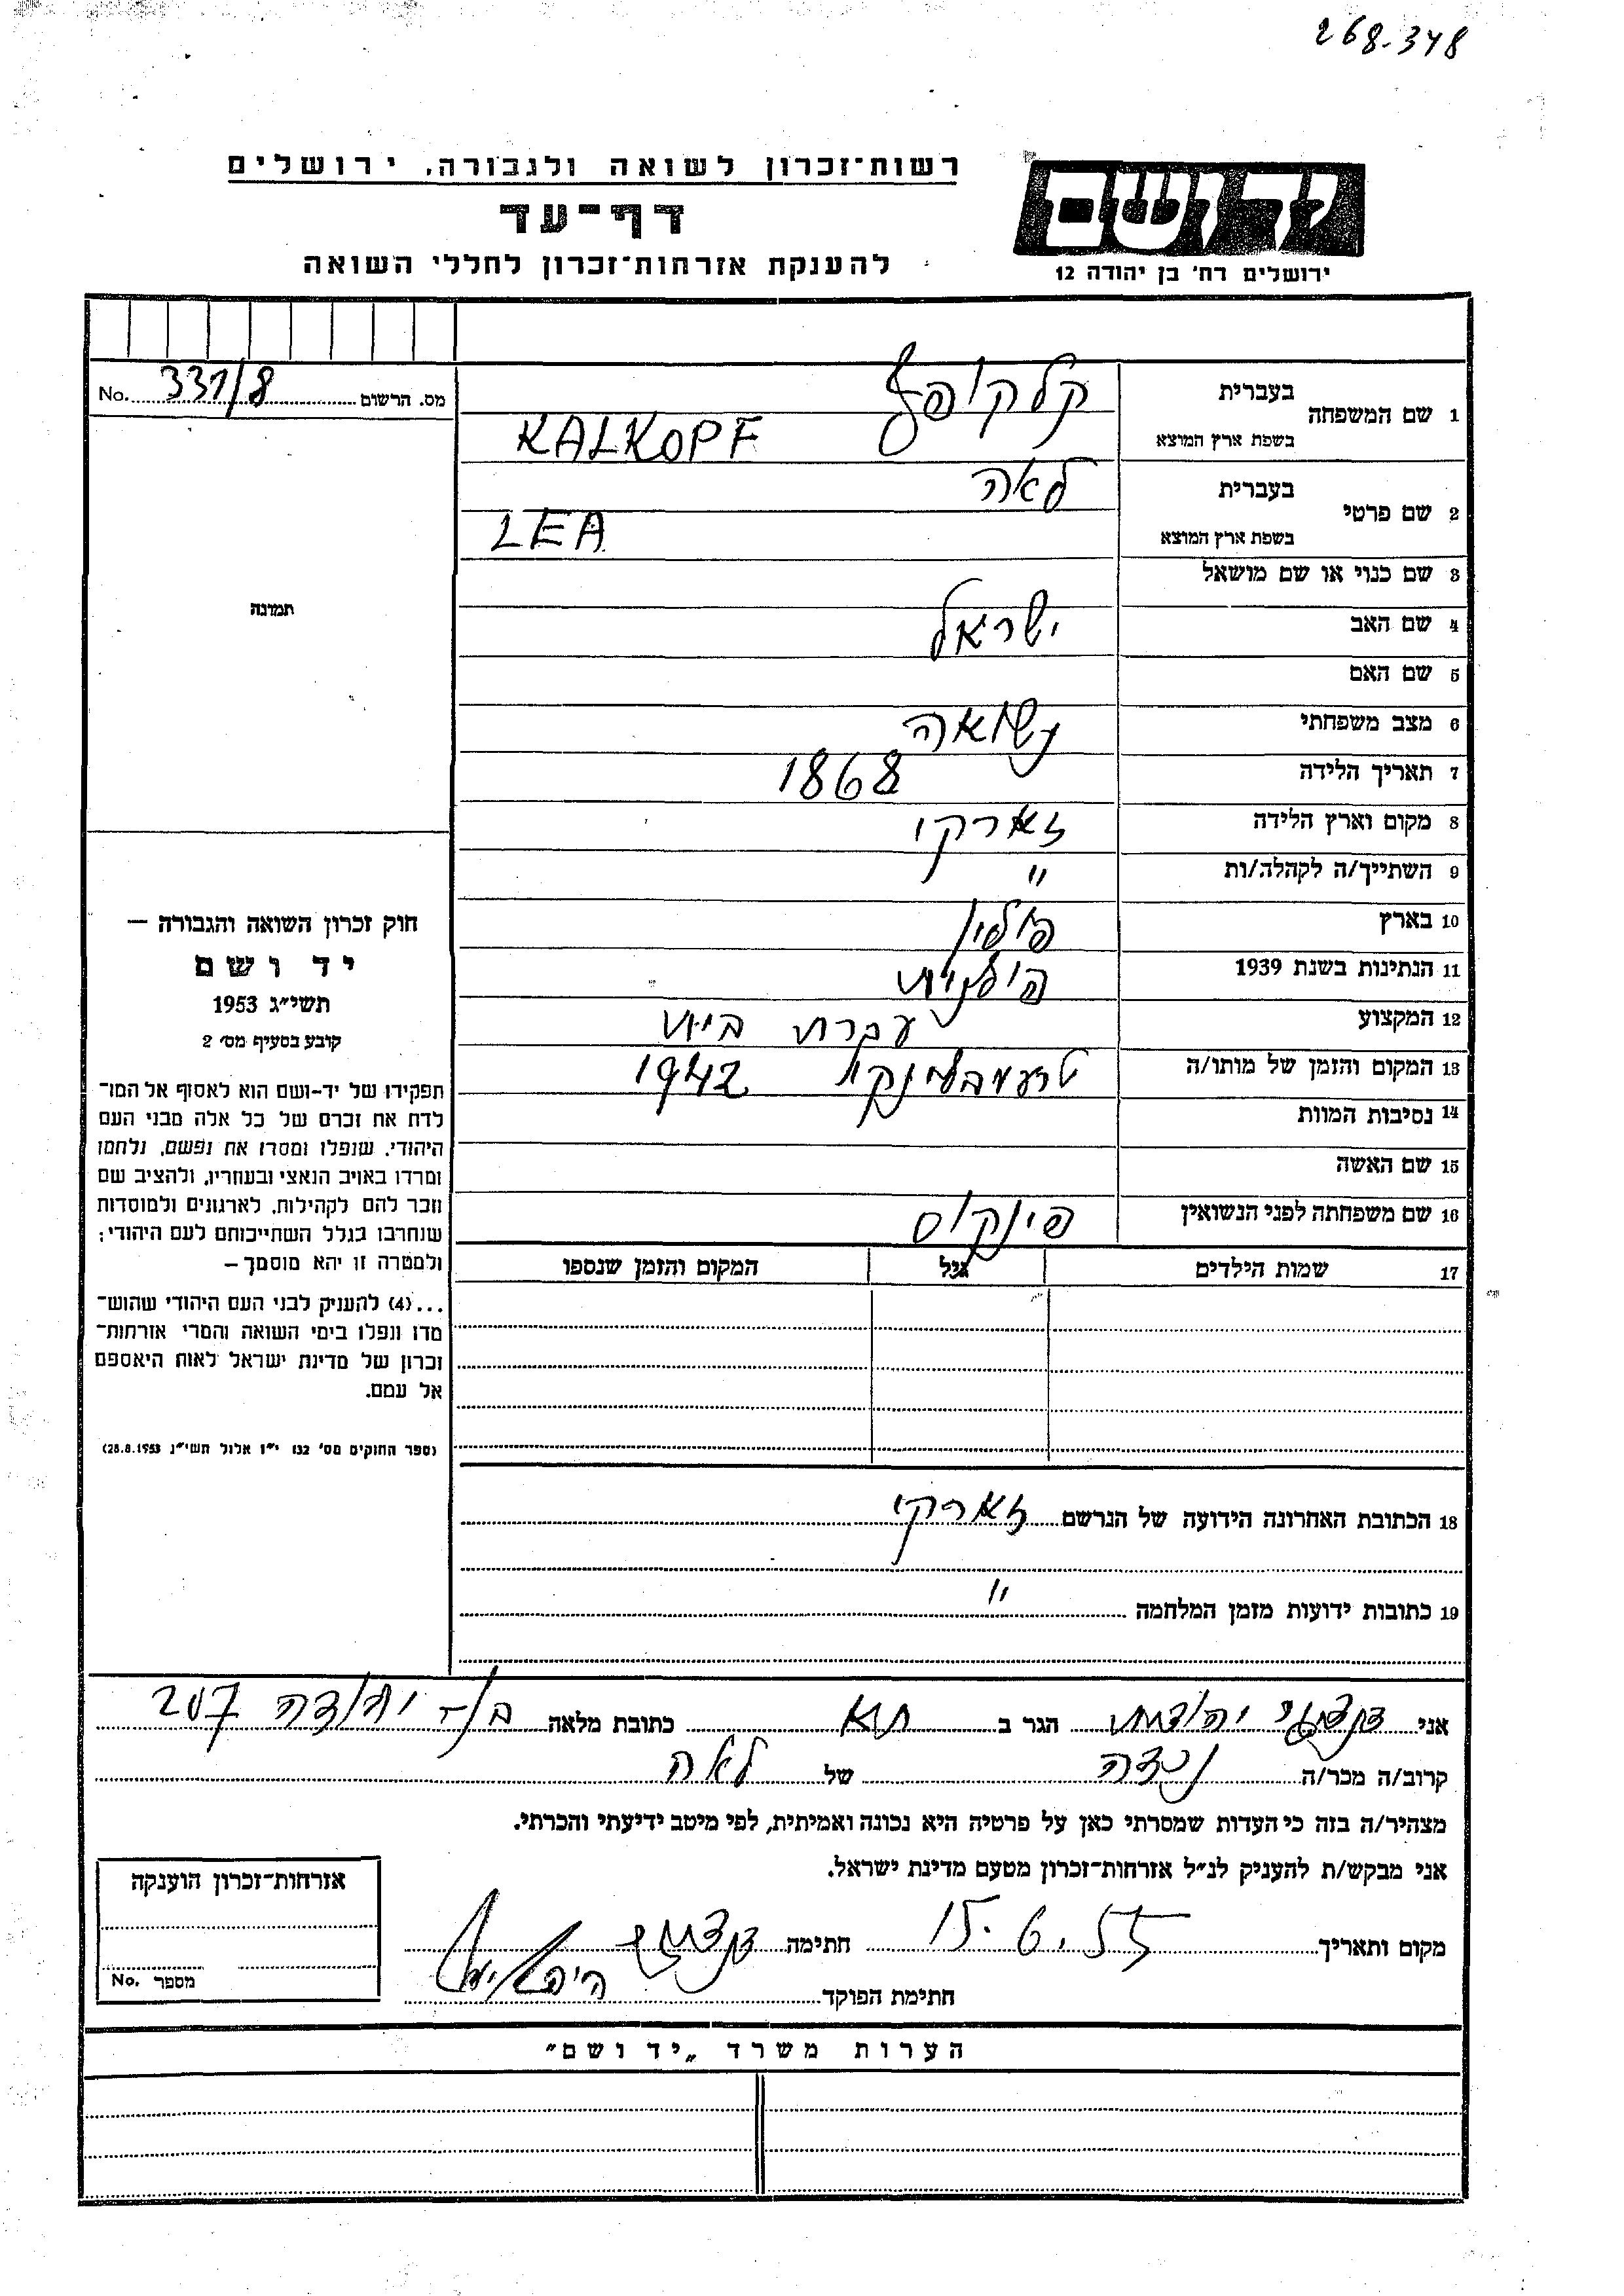 268.348
רשות־זכרון לשואה ולגבורה, ירושלים
יד ושם
דף־עד
להענקת אזרחות־זכרון לחללי השואה
ירושלים רח' בן יהודה 12
מס. הרשום 331/8 No.
1 שם המשפחה בעברית קלקופף
בשפת ארץ המוצא KALKOPF
2 שם פרטי בעברית לאה
בשפת ארץ המוצא LEA
3 שם כנוי או שם מושאל
4 שם האב ישראל
5 שם האם
6 מצב משפחתי נשואה
7 תאריך הלידה 1868
8 מקום וארץ הלידה זארקי
9 השתייך/ה לקהלה/ות "
10 בארץ פולין
11 הנתינות בשנת 1939 פולנית
12 המקצוע עקרת בית
13 המקום והזמן של מותו/ה 1942
14 נסיבות המוות
15 שם האשה
16 שם משפחתה לפני הנשואין פינקוס
17 שמות הילדים גיל המקום והזמן שנספו
18 הכתובת האחרונה הידועה של הנרשם זארקי
19 כתובות ידועות מזמן המלחמה "
תמונה
חוק זכרון השואה והגבורה –
יד ושם
תשי״ג 1953
קובע בסעיף מס' 2
תפקידו של יד-ושם הוא לאסוף אל המו־
לדת את זכרם של כל אלה מבני העם
היהודי, שנפלו ומסרו את נפשם, נלחמו
ומרדו באויב הנאצי ובעוזריו, ולהציב שם
וזכר להם לקהילות, לארגונים ולמוסדות
שנחרבו בגלל השתייכותם לעם היהודי;
ולמטרה זו יהא מוסמך –
...(4) להעניק לבני העם היהודי שהוש־
מדו ונפלו בימי השואה והמרי אזרחות־
זכרון של מדינת ישראל לאות היאספם
אל עמם.
(ספר החוקים מס' 132 י״ז אלול תשי״ג 28.8.1953)
אני יהודית הגר ב תא כתובת מלאה בן יהודה 207
קרוב/ה מכר/ה נכדה של לאה
מצהיר/ה בזה כי העדות שמסרתי כאן על פרטיה היא נכונה ואמיתית, לפי מיטב ידיעתי והכרתי.
אני מבקש/ת להעניק לנ״ל אזרחות־זכרון מטעם מדינת ישראל.
מקום ותאריך 15.6.55 חתימה
חתימת הפוקד
אזרחות־זכרון הוענקה
מספר No.
הערות משרד „יד ושם"